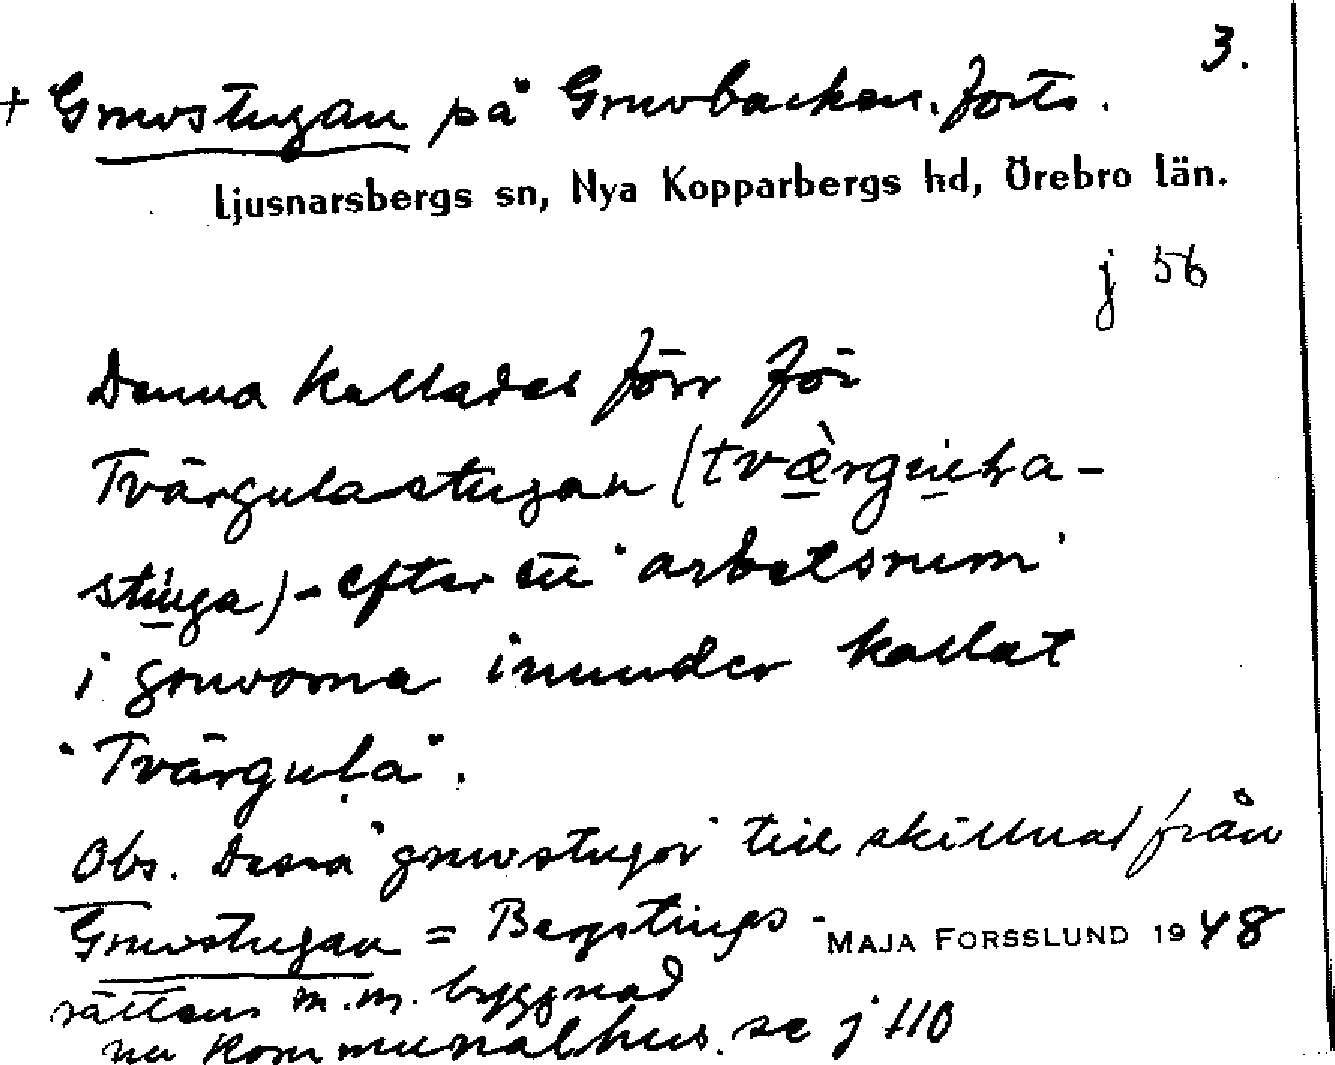 3.
+ Gruvstugan på Gruvbacken. forts.
Ljusnarsbergs sn, Nya Kopparbergs hd, Örebro län.
j 56
Denna kallades förr för
Tvärgulastugan (tvæ̀rgula-
stuga) - efter ett "arbetsrum"
i gruvorna inunder kallat
"Tvärgula".
Obs. Dessa "gruvstugor" till skillnad från
Gruvstugan = Bergstings-
MAJA FORSSLUND 1948
rättens m.m. byggnad
nu kommunalhus. se j 110